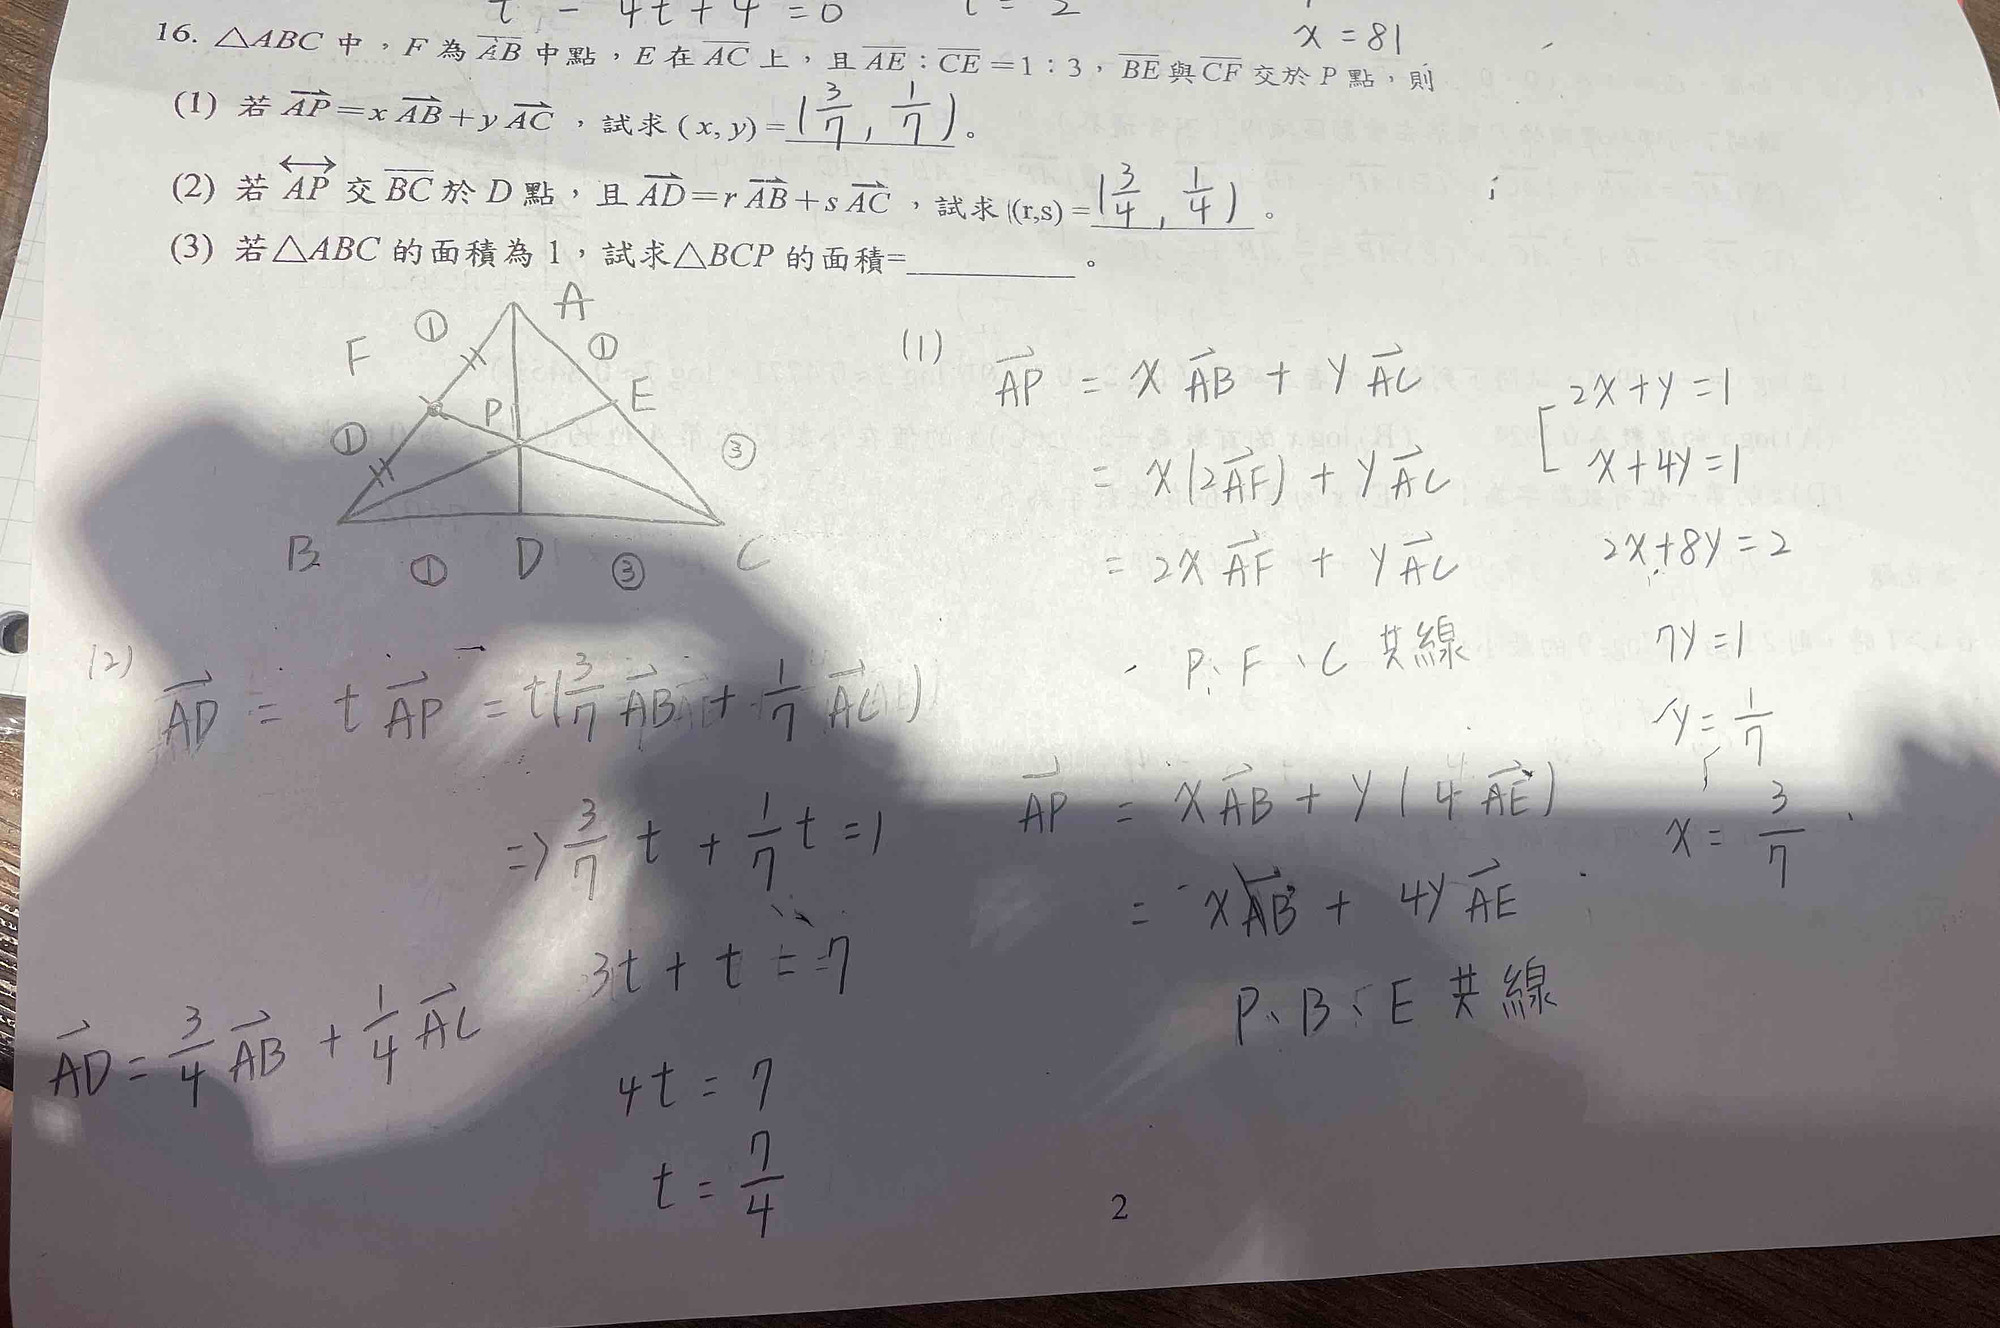 t² - 4t + 4 = 0   t = 2
x = 81
16. △ABC 中，F 為 AB 中點，E 在 AC 上，且 AE：CE＝1：3，BE 與 CF 交於 P 點，則
(1) 若 AP＝x AB＋y AC ，試求 (x, y)＝(3/7, 1/7)。
(2) 若 AP 交 BC 於 D 點，且 AD＝r AB＋s AC ，試求 (r,s)＝(3/4, 1/4)。
(3) 若△ABC 的面積為 1，試求△BCP 的面積=__________。
A
① ①
F
P E
① ③
B D C
① ③
(1)
AP = x AB + y AC
= x(2AF) + y AC
= 2x AF + y AC
P、F、C 共線
AP = x AB + y (4 AE)
= x AB + 4y AE
P、B、E 共線
2x + y = 1
x + 4y = 1
2x + 8y = 2
7y = 1
y = 1/7
x = 3/7
(2)
AD = t AP = t(3/7 AB + 1/7 AC)
=> 3/7 t + 1/7 t = 1
3t + t = 7
4t = 7
t = 7/4
AD = 3/4 AB + 1/4 AC
2